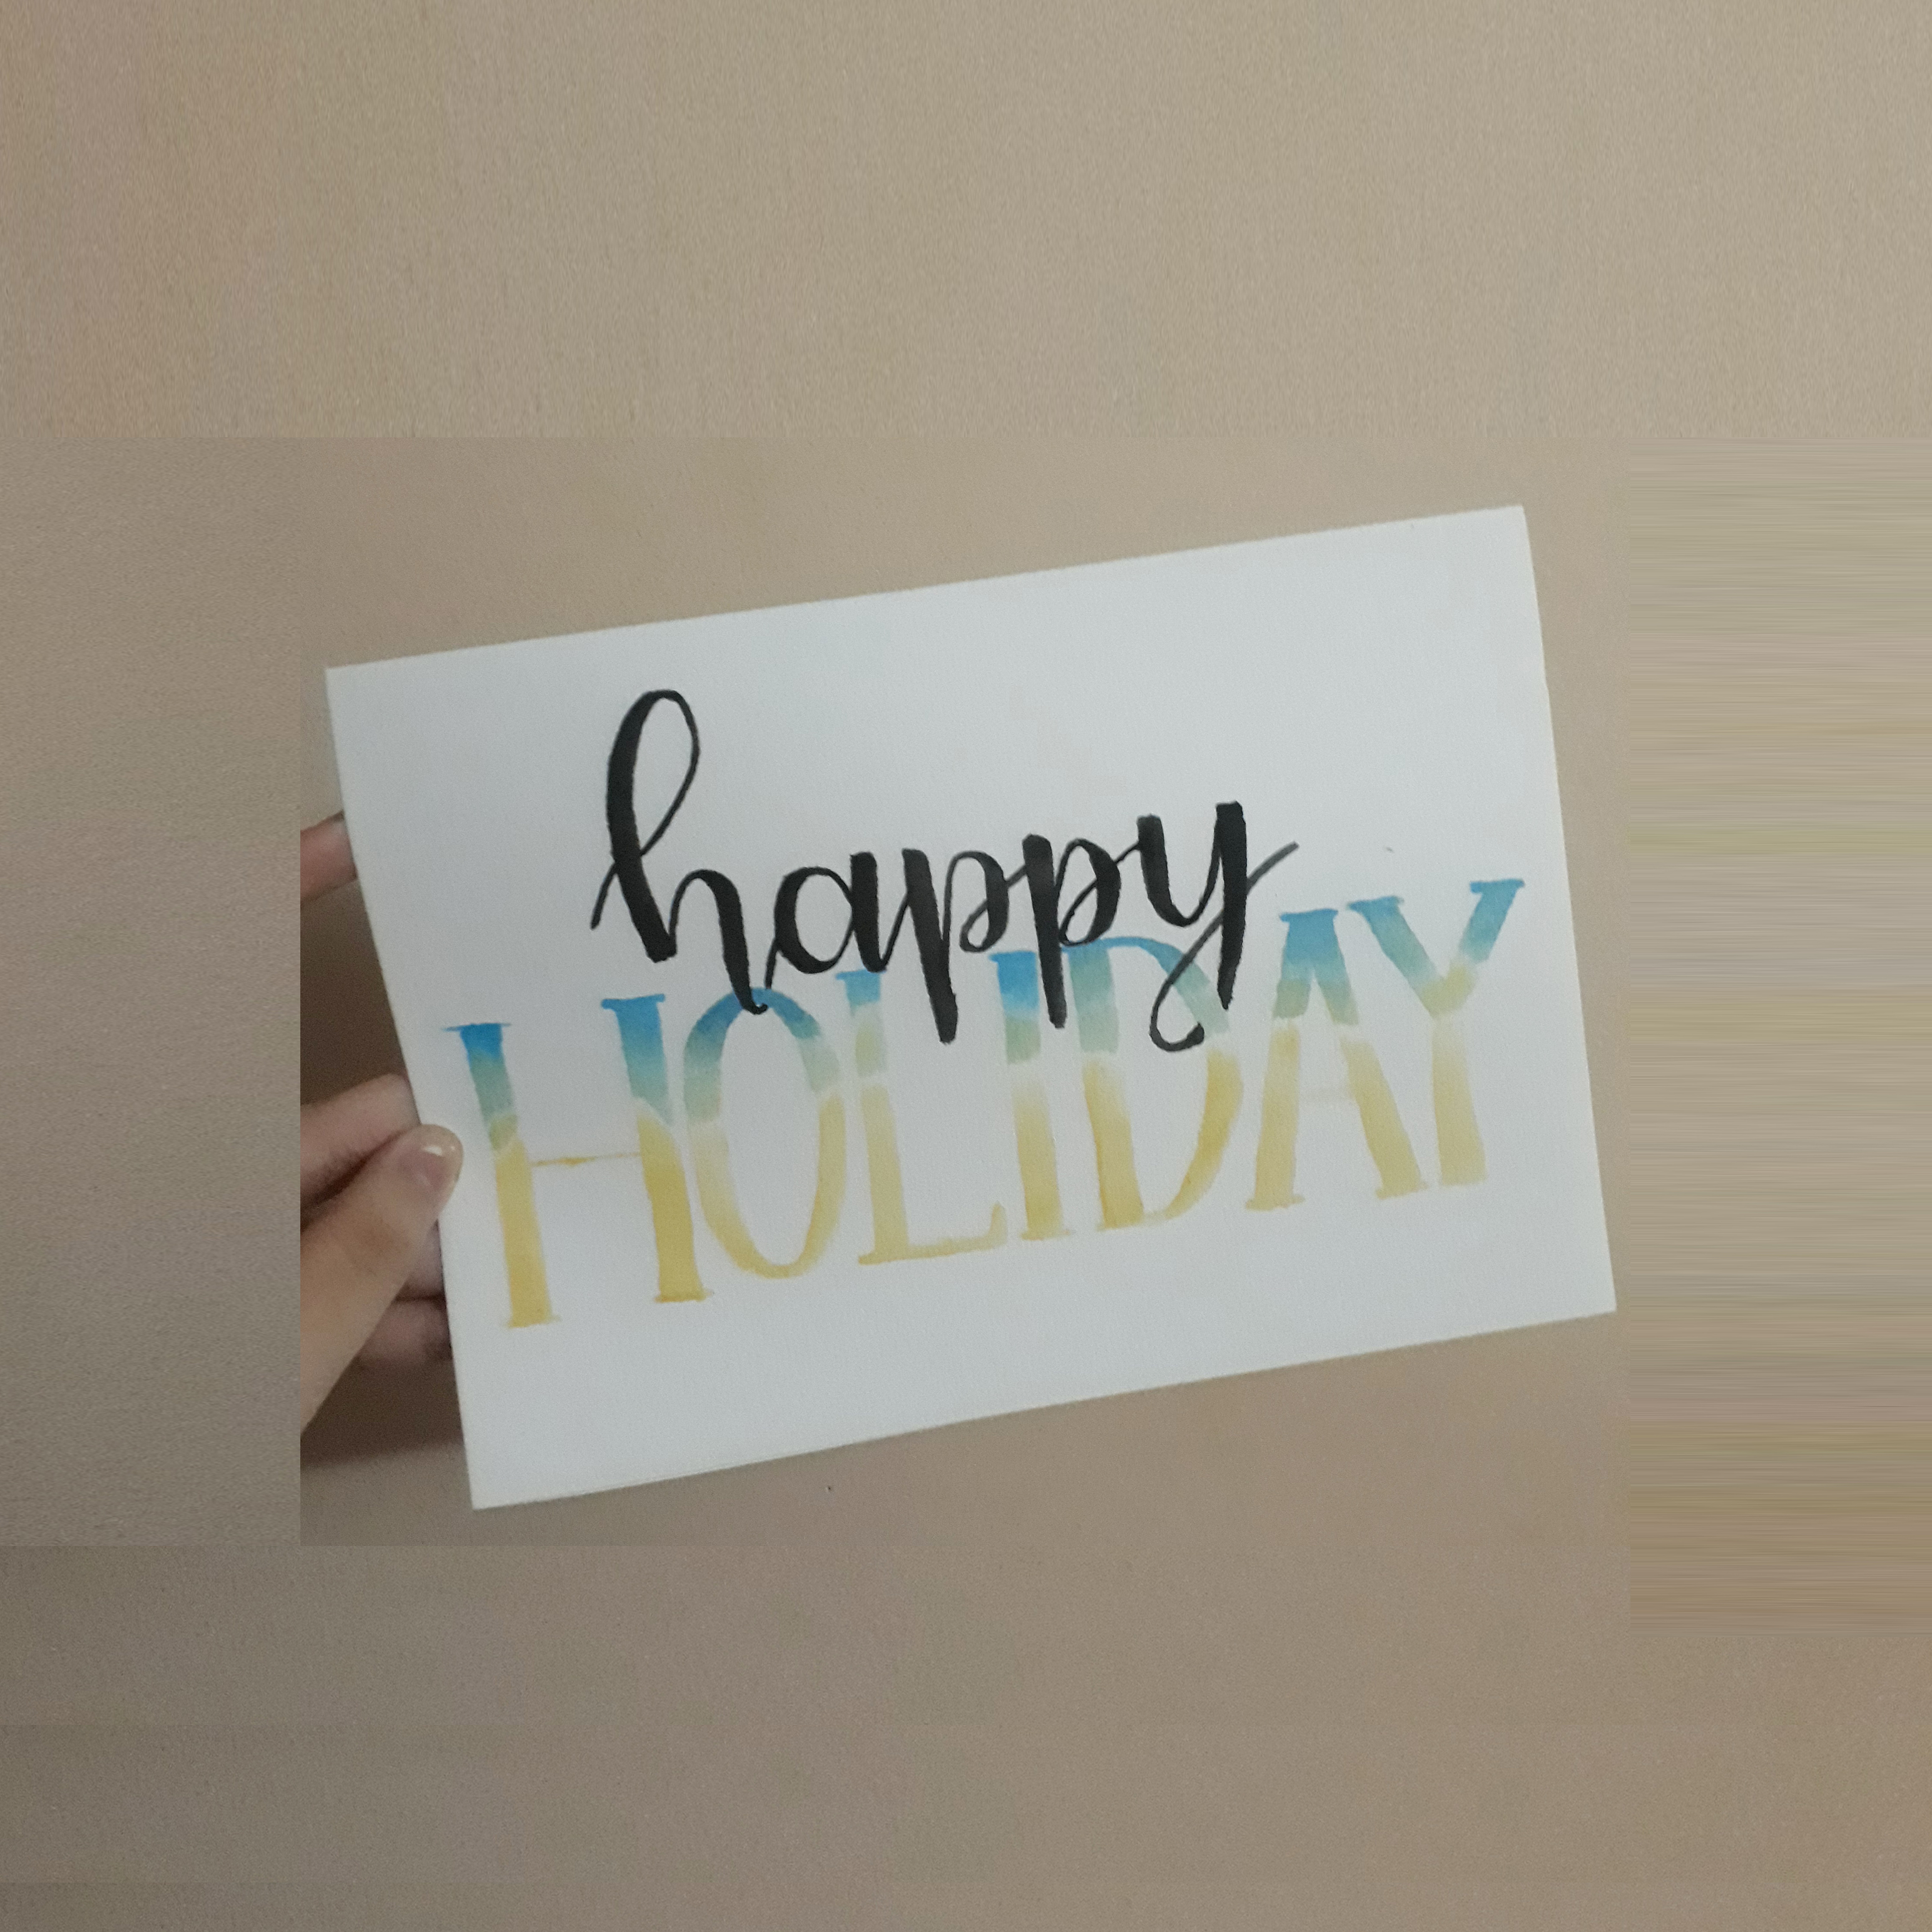 happy
HOLIDAY